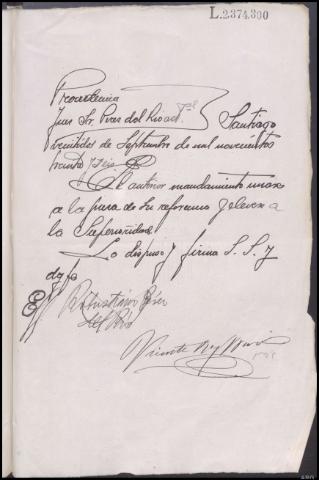 L.2.374.300
Providencia
Juez Sr. Perez del Rio acl. Santiago
veintidos de Septiembre de mil novecientos
treinta y seis
El anterior mandamiento unase
a la pieza de su referencia y elevese a
la Superioridad.
Lo dispuso y firma S. S. y
doy fe
Perez
del Rio
Vicente Rey